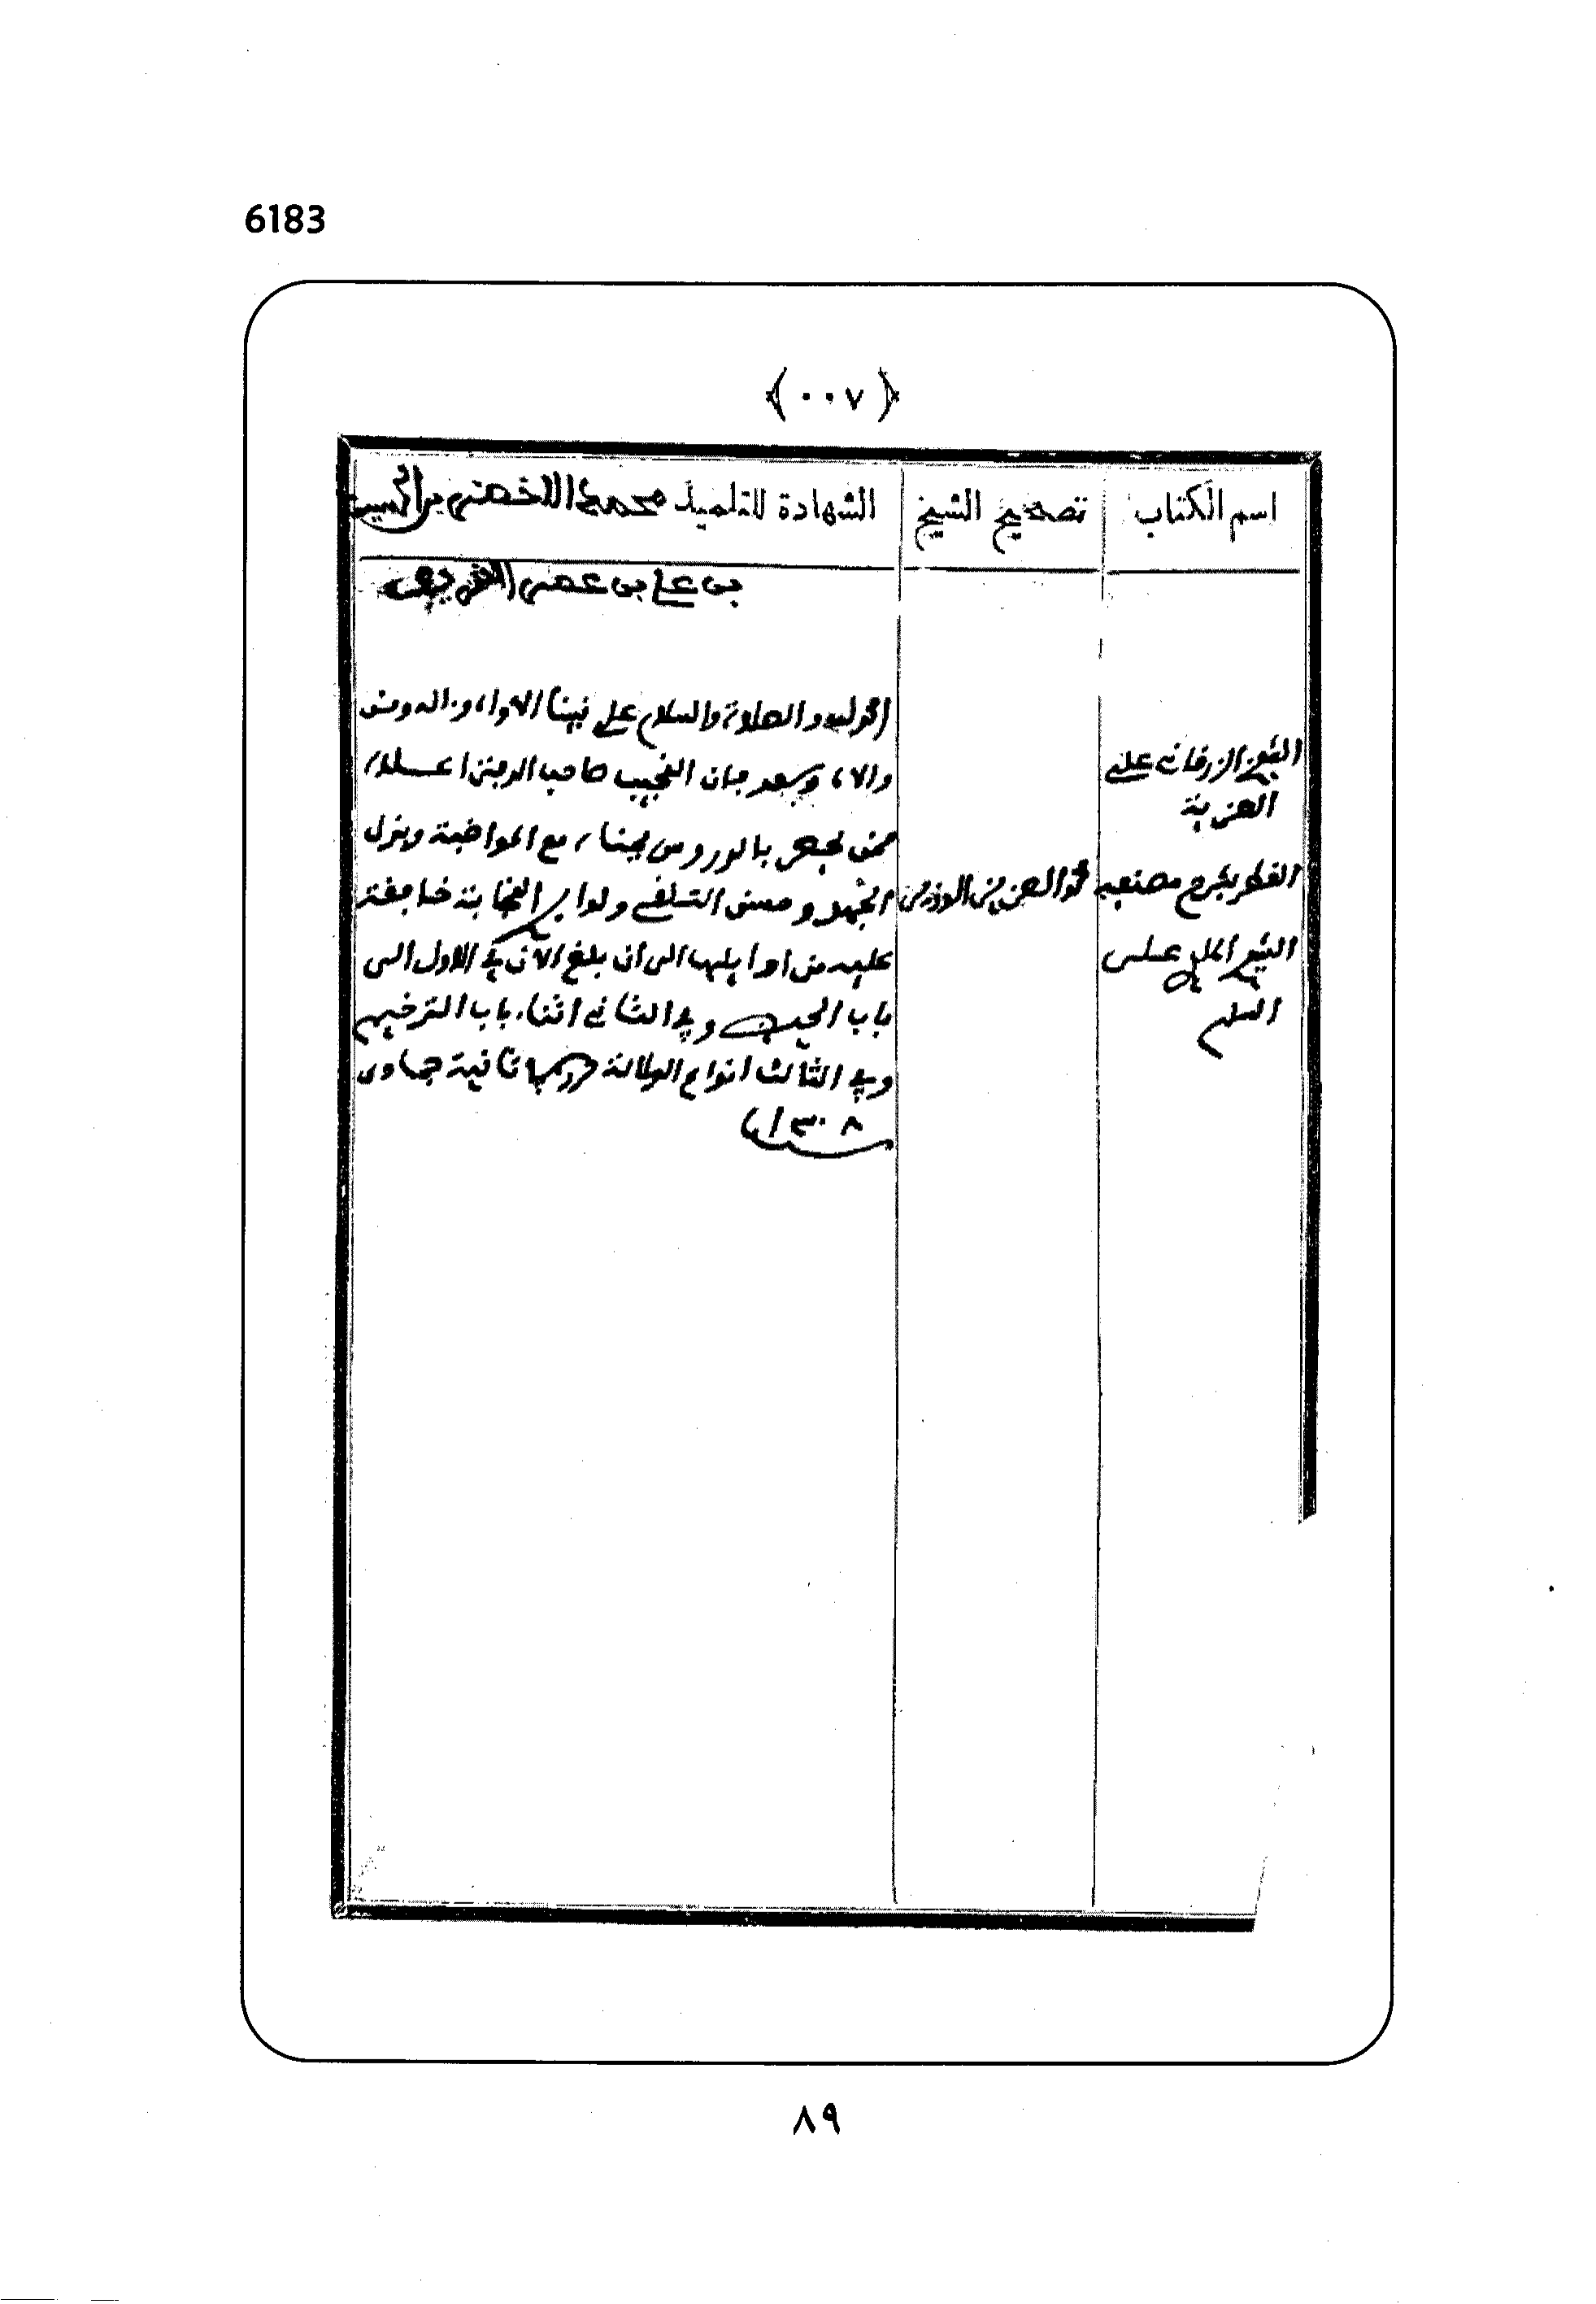 6183
﴿ ٠٠٧ ﴾
اسم الكتاب
تصحيح الشيخ
الشهادة للتلميذ محمد الاخضر بن الحسين
بن علي بن عمر الشريف
الشيخ الزرقاني على
العزية
القطر بشرح مصنفه
الشيخ الملوي على
السلم
محمد العزيز الوزير
الحمد لله والصلاة والسلام على نبينا الاواه و
وآله وبعد فان النجيب صاحب الدفتر اعلاه
ممن يحضر بالدروس بجناه مع المواظبة وبذل
الجهد وحسن التلقي ولوايح النجابة خافقة
عليه من اوايلها الى ان بلغ الآن في الاول الى
باب الحيض وفي الثاني اثناء باب الترخيم
وفي الثالث انواع الدلالة ثانية جمادى
١٣٠٨
٨٩